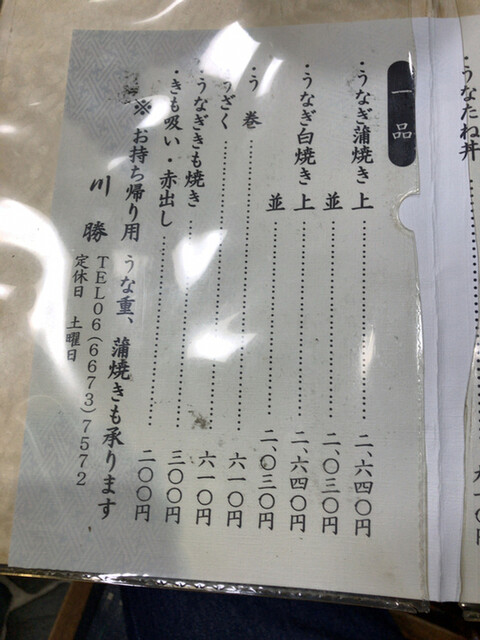 うなたね丼
六一〇円
一品
・うなぎ蒲焼き 上 二、六四〇円
並 二、〇三〇円
・うなぎ白焼き 上 二、六四〇円
並 二、〇三〇円
・う巻 六一〇円
・うざく 六一〇円
・うなぎきも焼き 三〇〇円
・きも吸い・赤出し 二〇〇円
※お持ち帰り用 うな重、蒲焼きも承ります
川勝 TEL06(6673)7572
定休日 土曜日